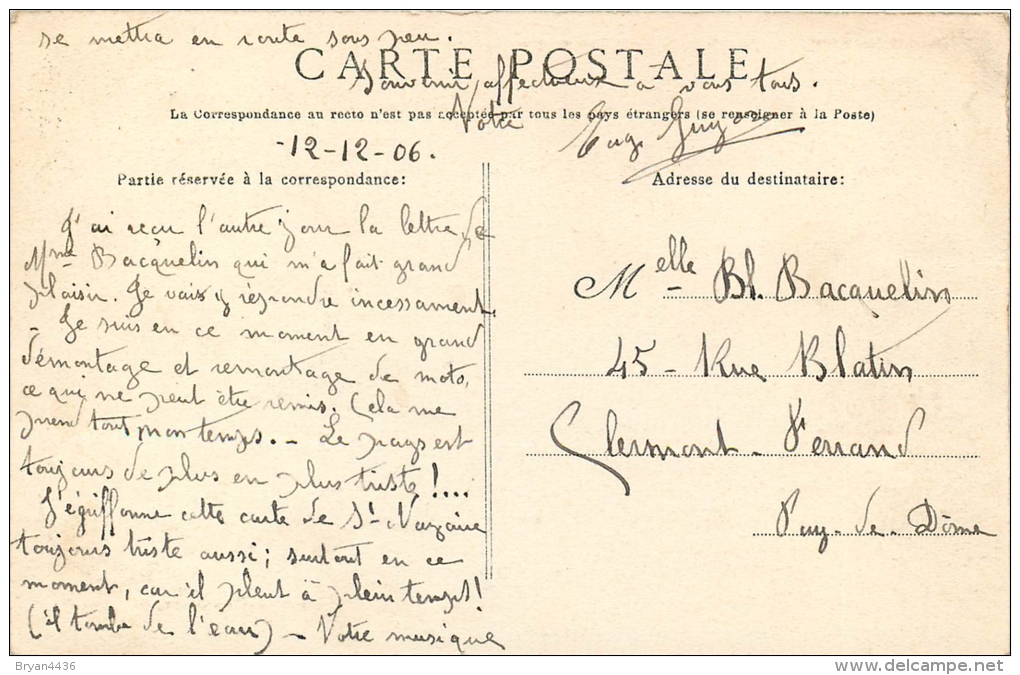 CARTE POSTALE
La Correspondance au recto n'est pas acceptée par tous les pays étrangers (se renseigner à la Poste)
-12-12-06.
Partie réservée à la correspondance:
J'ai reçu l'autre jour la lettre de
Mme Bacquelin qui m'a fait grand
plaisir. Je vais y répondre incessament.
- Je suis en ce moment en grand
démontage et remontage de moto,
ce qui ne peut être remis. Cela me
prend tout mon temps. - Le pays est
toujours de plus en plus triste !....
J'égriffonne cette carte de St Nazaire
toujours triste aussi; surtout en ce
moment, car il pleut à plein temps!
(il tombe de l'eau) - Votre musique
se mettra en route sous peu.
Souvenir affectueux à vous tous.
Votre
Eug.
Adresse du destinataire:
Melle Bl. Bacquelin
45 - Rue Blatin
Clermont - Ferrand
Puy-de-Dôme
Bryan4436
delcampe.net